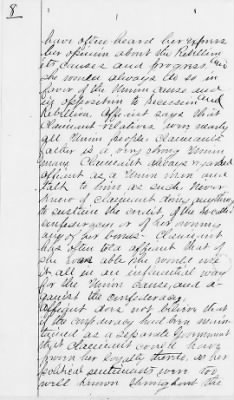 8
have often heard her express
her opinion about the Rebellion
its causes and progress. and
she would always do so in
favor of the Union cause and
in opposition to Secession and
Rebellion. Affiant says that
Claimants relatives were nearly
all Union people. Claimants
father is a very strong Union
man. Claimant always regarded
affiant as a Union man and
talk to him as such. Never
knew of Claimant doing anything
to sustain the credit of the so called
confederacy or of her owning
any of her bonds. Claimant
has often told affiant that if
she was able she would use
it all in an influential way
for the Union Cause, and a-
gainst the confederacy.
Affiant does not believe that
if the confederacy had been main-
tained as a separate government
that claimant could have
from her loyalty as her
political sentiments were too
well known throughout the